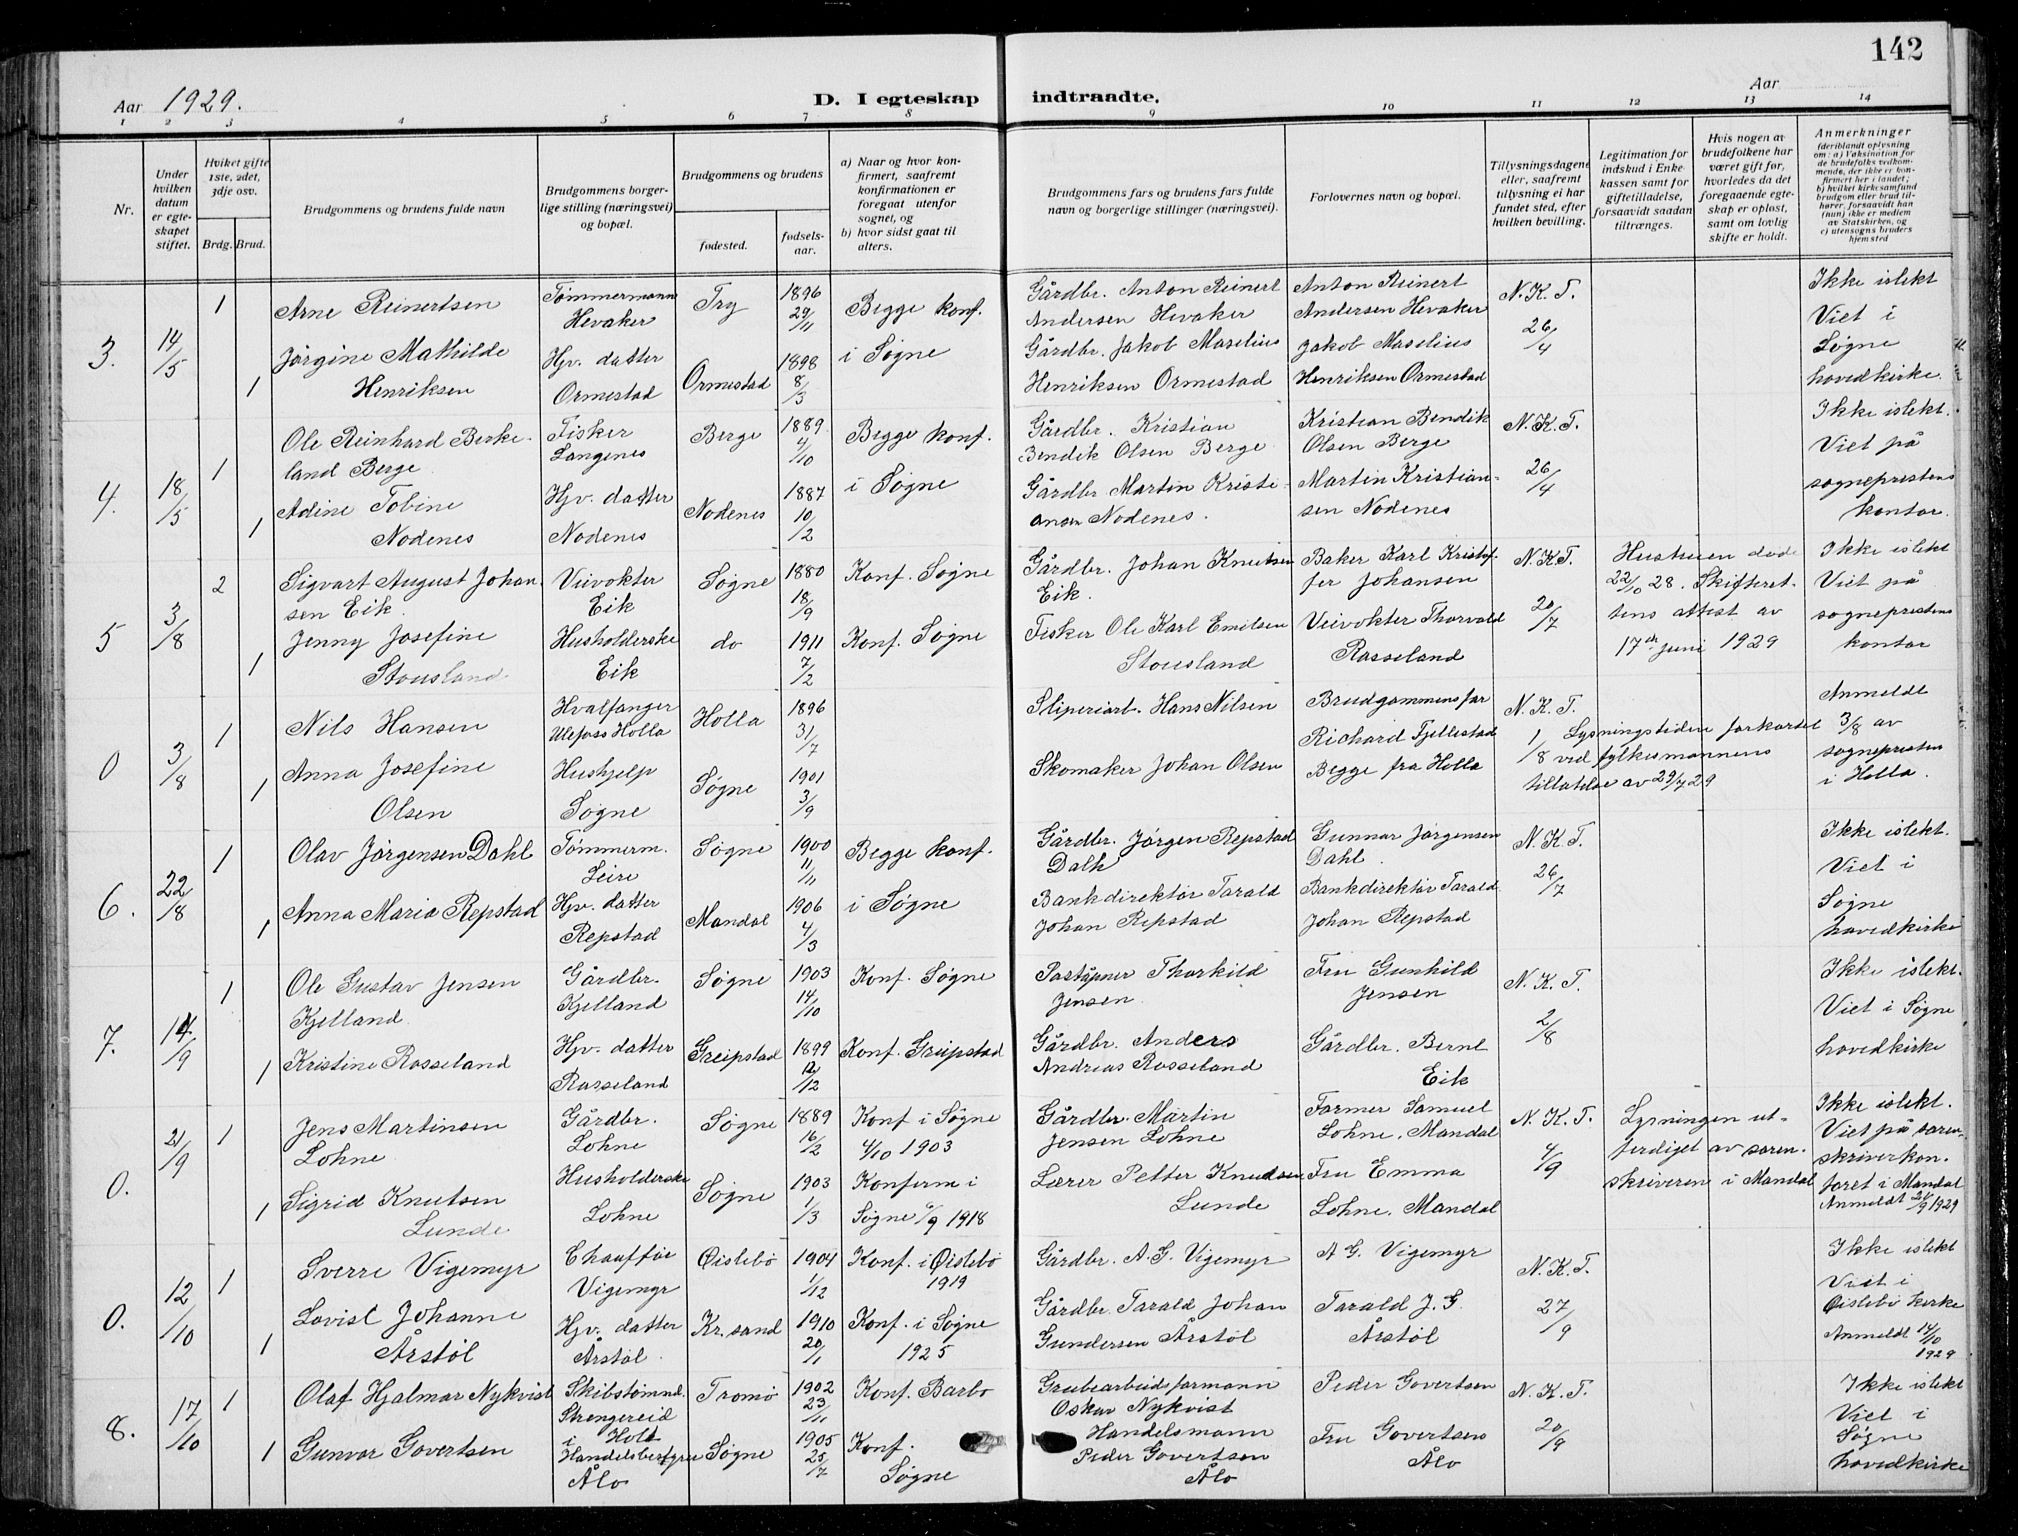 142
Aar 1929.
D. I egteskap indtraadte.
Aar
1 2 3 4 5 6 7 8 9 10 11 12 13 14
Nr.
Under hvilken datum er egteskapet stiftet.
Hviket gifte 1ste, 2det, 3dje osv.
Brdg. Brud.
Brudgommens og brudens fulde navn
Brudgommens borgerlige stilling (næringsvei) og bopæl.
Brudgommens og brudens
fødested.
fødselsaar.
a) Naar og hvor konfirmert, saafremt konfirmationen er foregaat utenfor sognet, og
b) hvor sidst gaat til alters.
Brudgommens fars og brudens fars fulde navn og borgerlige stillinger (næringsvei).
Forlovernes navn og bopæl.
Tillysningsdagene eller, saafremt tillysning ei har fundet sted, efter hvilken bevilling.
Legitimation for indskud i Enkekassen samt for giftetilladelse, forsaavidt saadan tiltrænges.
Hvis nogen av brudefolkene har været gift før, hvorledes da det foregaaende egteskap er opløst, samt om lovlig skifte er holdt.
Anmerkninger (deriblandt oplysning om: a) Vaksination for de brudefolks vedkommende, der ikke er konfirmert her i landet; b) hvilket kirkesamfund brudgom eller brud tilhører, forsaavidt han (hun) ikke er medlem av Statskirken, og c) utensogns bruders hjemsted
3. 14/5
1 Arne Reinertsen Tømmermann Hevaker Try 1896 29/11 Begge konf. i Søgne
Gårdbr. Anton Reinert Andersen Hevaker
Anton Reinert Andersen Hevaker
N.K.T. 26/4
Ikke islekt Viet i Søgne hovedkirke.
1 Jørgine Mathilde Henriksen Hjv. datter Ormestad Ormestad 1898 8/3
Gårdbr. Jakob Maselius Henriksen Ormestad
Jakob Maselius Henriksen Ormestad
4. 18/5
1 Ole Reinhard Berkeland Berge Fisker Langenes Berge 1889 4/10 Begge konf. i Søgne
Gårdbr. Kristian Bendik Olsen Berge
Kristian Bendik Olsen Berge
N.K.T. 26/4
Ikke islekt. Viet på sogneprestens kontor.
1 Adine Tobine Nodenes Hjv. datter Nodenes Nodenes 1887 10/2
Gårdbr Martin Kristiansen Nodenes.
Martin Kristiansen Nodenes
5 3/8
2 Sigvart August Johansen Eik. Veivokter Eik Søgne 1880 18/9 Konf. Søgne
Gårdbr. Johan Knutsen Eik.
Baker Karl Kristoffer Johansen
N.K.T. 20/7
Hustruen døde 22/10 28. Skifterettens attest av 17de juni 1929
Ikke islekt Viet på sogneprestens kontor
1 Jenny Josefine Stousland Husholderske Eik do 1911 7/2 Konf. Søgne
Fisker Ole Karl Emilsen Stousland
Veivokter Thorvald Rasseland
0 3/8
1 Nils Hansen Hvalfanger Ulefoss Holla Holla 1896 31/7
Sliperiarb. Hans Nilsen
Brudgommens far
N.K.T. 1/8
Lysningstiden forkortet ved fylkesmannens tillatelse av 29/7 29
Anmeldt 3/8 av sognepresten i Holla.
1 Anna Josefine Olsen Hushjelp Søgne Søgne 1901 3/9
Skomaker Johan Olsen
Richard Fjellestad Begge fra Holla
6. 22/8
1 Olav Jørgensen Dahl Tømmerm. Leire Søgne 1900 11/11 Begge konf. i Søgne
Gårdbr. Jørgen Repstad Dalh
Gunnar Jørgensen Dahl.
N.K.T. 26/7
Ikke islekt. Viet i Søgne hovedkirke
1 Anna Maria Repstad Hjv. datter Repstad Mandal 1906 4/3
Bankdirektør Tarald Johan Repstad
Bankdirektør Tarald Johan Repstad
7. 14/9
1 Ole Gustav Jensen Kjelland Gårdbr. Kjelland Søgne 1903 14/10 Konf. Søgne
Poståpner Thorkild Jensen
Fru Gunhild Jensen
N.K.T. 2/8
Ikke islekt. Viet i Søgne hovedkirke
1 Kristine Rosseland Hjv. datter Rosseland Greipstad 1899 12/12 Konf. Greipstad
Gårdbr. Anders Andreas Rosseland
Gårdbr. Bernt Eik
0. 21/9
1 Jens Martinsen Lohne Gårdbr. Lohne Søgne 1889 16/2 Konf i Søgne 4/10 1903
Gårdbr. Martin Jensen Lohne
Farmer Samuel Lohne, Mandal
N.K.T. 4/9
Lysningen utferdiget av sorenskriveren i Mandal
Ikke islekt. Viet på sorenskriverkontoret i Mandal Anmeldt 24/9 1929
1 Sigrid Knutsen Lunde Husholderske Lohne Søgne 1903 1/3 Konferm i Søgne 6/9 1918
Lærer Petter Knudsen Lunde
Fru Emma Lohne, Mandal
0. 12/10
1 Sverre Vigemyr Chauffør Vigemyr Øislebø 1904 1/12 Konf. i Øislebø 1919
Gårdbr. A.G. Vigemyr
A G. Vigemyr
N.K.T. 27/9
Ikke islekt Viet i Øislebø kirke Anmeldt 14/10 1929
1 Lovise Johanne Årstøl Hjv. datter Årstøl. Kr.sand 1910 20/1 Konf. i Søgne 1925
Gårdbr. Tarald Johan Gundersen Årstøl
Tarald J.G. Årstøl
8. 17/10
1 Olaf Hjalmar Nykvist Skibstømmd. Strengereid i Holt Tromø 1902 23/11 Konf. Barbo
Grubearbeidsformann Oskar Nykvist
Peder Govertsen
N.K.T. 20/9
Ikke islekt Viet i Søgne hovedkirke
1 Gunvor Govertsen Handelsbestyrer Ålo Søgne 1905 25/7 Konf. Søgne
Handelsmann Peder Govertsen Ålo
Fru Govertsen Ålo